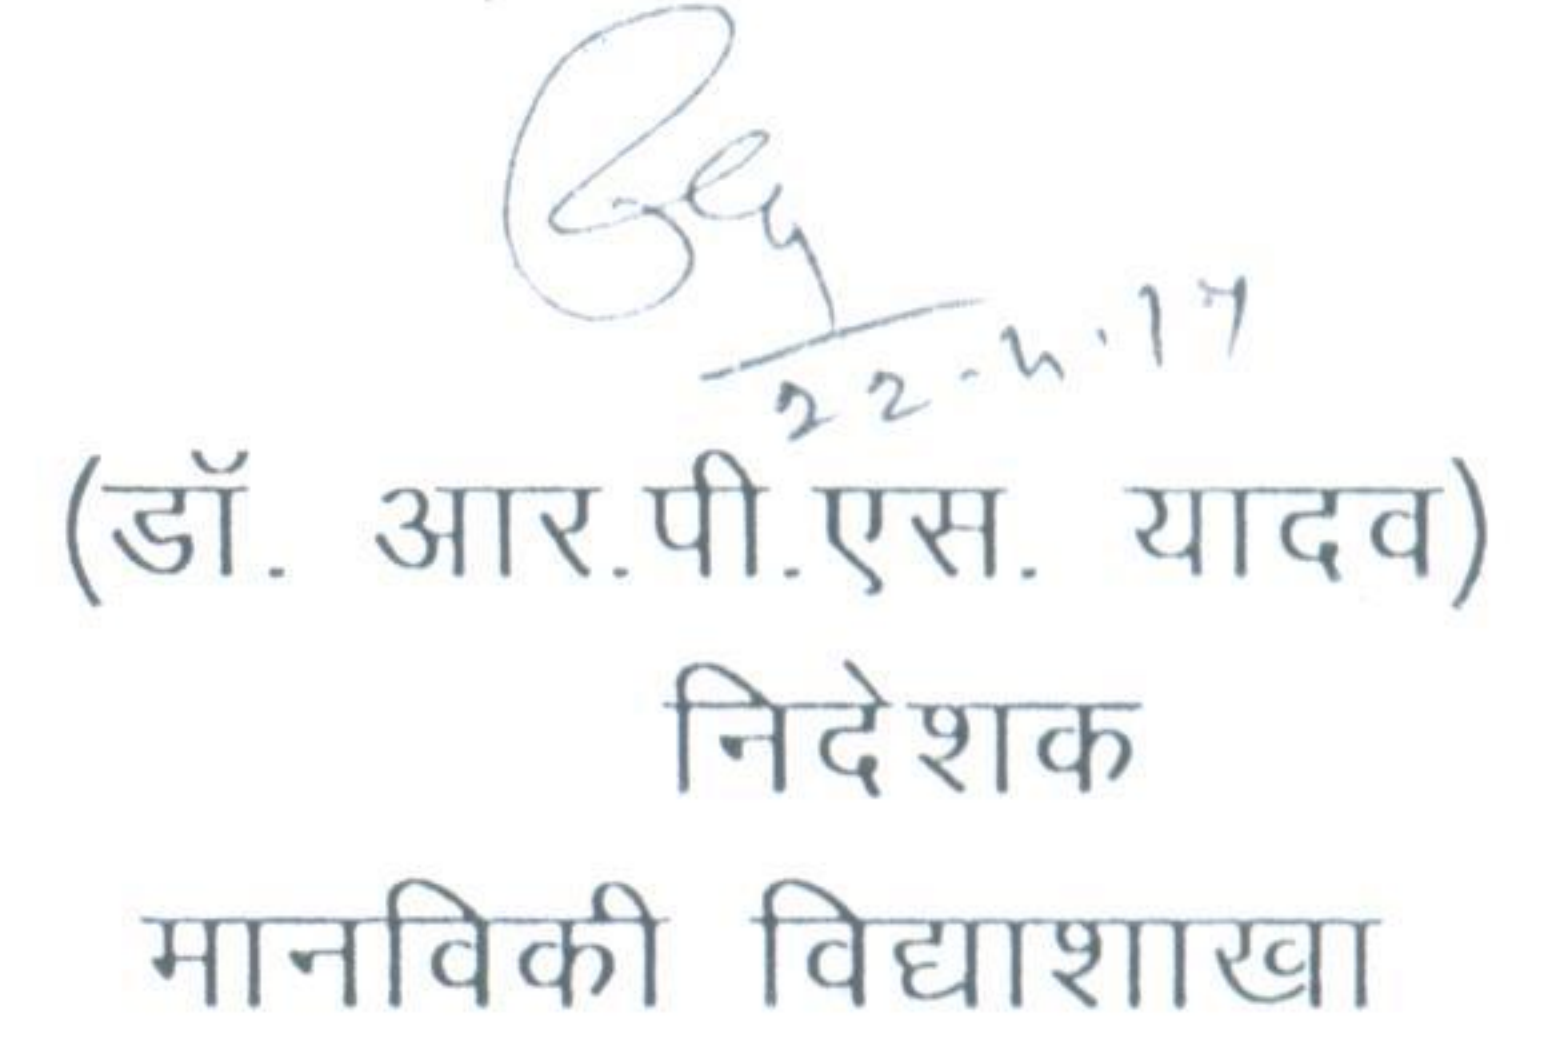 22-4.17
(डॉ. आर.पी.एस. यादव)
निदेशक
मानविकी विद्याशाखा